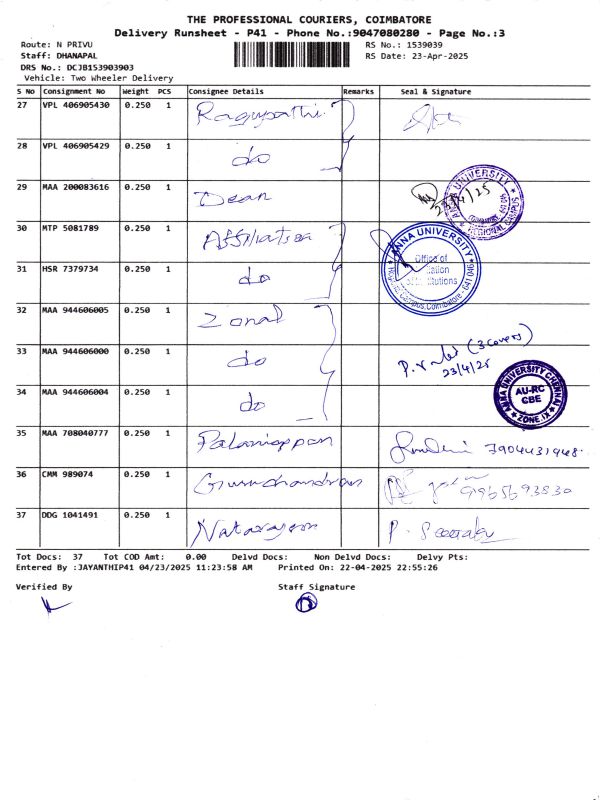 THE PROFESSIONAL COURIERS, COIMBATORE
Delivery Runsheet - P41 - Phone No.:9047080280 - Page No.:3
Route: N PRIVU RS No.: 1539039
Staff: DHANAPAL RS Date: 23-Apr-2025
DRS No.: DCJB153903903
Vehicle: Two Wheeler Delivery
S No Consignment No Weight PCS Consignee Details Remarks Seal & Signature
27 VPL 406905430 0.250 1 Ragupathi
28 VPL 406905429 0.250 1 do
29 MAA 200083616 0.250 1 Dean 23/4/25
ANNA UNIVERSITY REGIONAL CAMPUS
30 MTP 5081789 0.250 1 Affiliation
ANNA UNIVERSITY
Office of
Institutions
Campus, Coimbatore - 641 046
31 HSR 7379734 0.250 1 do
32 MAA 944606005 0.250 1 Zonal
33 MAA 944606000 0.250 1 do (3 covers)
23/4/25
34 MAA 944606004 0.250 1 do
ANNA UNIVERSITY CHENNAI
AU-RC
CBE
ZONE IX
35 MAA 708040777 0.250 1 Palaniappan 7904431948
36 CMM 989074 0.250 1 Guruchandran 9965693830
37 DDG 1041491 0.250 1 Natarajan
Tot Docs: 37 Tot COD Amt: 0.00 Delvd Docs: Non Delvd Docs: Delvy Pts:
Entered By :JAYANTHIP41 04/23/2025 11:23:58 AM Printed On: 22-04-2025 22:55:26
Verified By Staff Signature